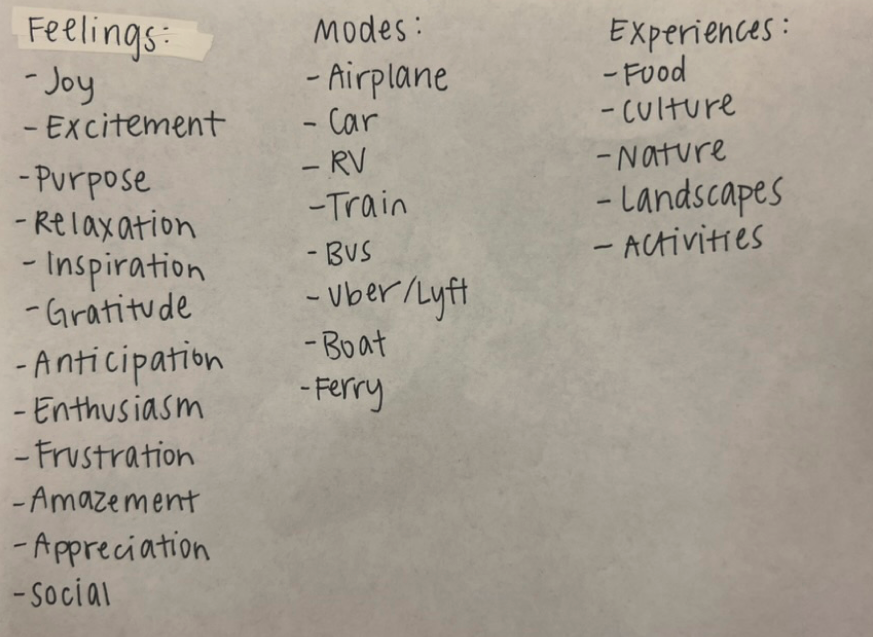 Feelings:
- Joy
- Excitement
- Purpose
- Relaxation
- Inspiration
- Gratitude
- Anticipation
- Enthusiasm
- Frustration
- Amazement
- Appreciation
- Social
Modes:
- Airplane
- Car
- RV
- Train
- Bus
- Uber/Lyft
- Boat
- Ferry
Experiences:
- Food
- Culture
- Nature
- Landscapes
- Activities